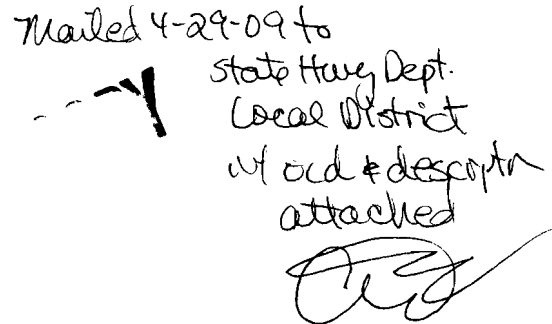 Mailed 4-29-09 to
State Hwy Dept.
Local District
w/ ord & descriptn
attached